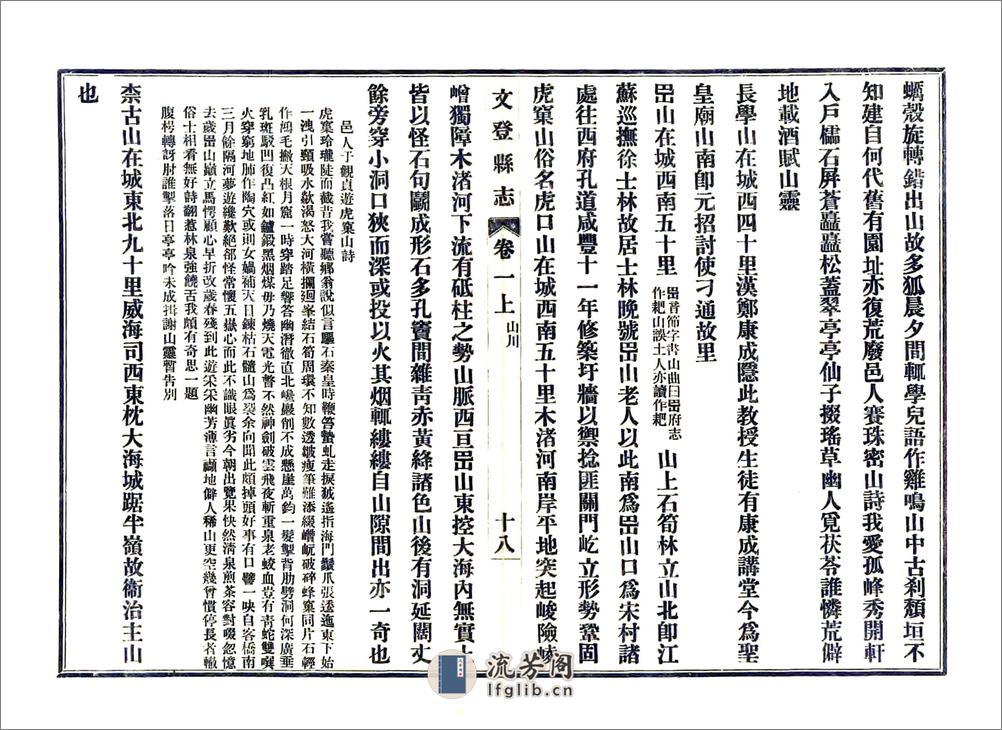 蠣殼旋轉錯出山故多狐晨夕間輒學兒語作雞鳴山中古刹頹垣不
知建自何代舊有園址亦復荒廢邑人賽珠密山詩我愛孤峰秀開軒
入戶檽石屏蒼矗矗松蓋翠亭亭仙子掇瑤草幽人覓茯苓誰憐荒僻
地載酒賦山靈
長學山在城西四十里漢鄭康成隱此教授生徒有康成講堂今爲聖
皇廟山南卽元招討使刁通故里
岊山在城西南五十里岊音節字書山曲曰岊府志作耙山誤土人亦讀作耙山上石筍林立山北卽江
蘇巡撫徐士林故居士林晚號岊山老人以此南爲岊山口爲宋村諸
處往西府孔道咸豐十一年修築圩牆以禦捻匪關門屹立形勢鞏固
虎窠山俗名虎口山在城西南五十里木渚河南岸平地突起峻險崚
文登縣志
卷一上
山川
十八
嶒獨障木渚河下流有砥柱之勢山脈西亘岊山東控大海內無實土
皆以怪石句鬭成形石多孔竇間雜靑赤黃絳諸色山後有洞延闊丈
餘旁穿小洞口狹而深或投以火其烟輒縷縷自山隙間出亦一奇也
邑人于觀貞遊虎窠山詩
虎窠玲瓏陡而截昔我嘗聽鄉翁說似言驅石秦皇時鞭笞蟄虬走捩遙指海門鬣爪張逶迤東下始
一洩引頸吸水歘渴怒大河橫攔迴峯結石筍周環不知數透皺瘦筆難添綴巑岏破碎蜂窠同片石輕
作鴻毛撇天根月窟一時穿踏足響答幽潛徹直北巉巖削不成懸崖萬鈞一髮掣背肋劈洞何深廣垂
乳斑駁凹復凸紅如鑪鍛黑烟煤毋乃燒天電光瞥不然神劍破雲飛夜斬重泉老蛟血豈有靑蛇雙噀
火穿窮地肺作陶穴或則女媧補天日鍊枯石髓山爲裂余向聞此頗掉頭好事有口譬一吷自客橋南
三月餘隔河夢遊纔歎絕郤怪常懷五嶽心而此不識眼眞劣今朝出覽果快然淸泉煎茶容對啜忽憶
去歲岊山巔立馬愕顧心早折改歲春殘到此遊采采幽芳薄言襭地僻人稀山更空幾曾慣停長者轍
俗士相看無好詩翻惹林泉強饒舌我頗有奇思一題
腹枵轉訝肘誰掣落日亭亭吟未成揖謝山靈暫告別
柰古山在城東北九十里威海司西東枕大海城踞半嶺故衞治主山
也
流芳閣
lfglib.cn